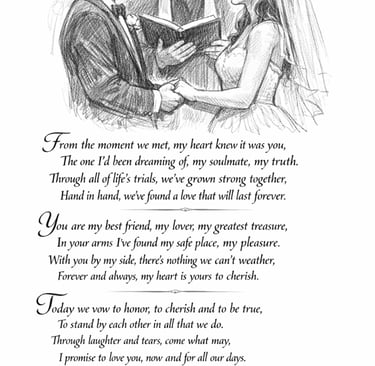 From the moment we met, my heart knew it was you,
The one I'd been dreaming of, my soulmate, my truth.
Through all of life's trials, we've grown strong together,
Hand in hand, we've found a love that will last forever.
You are my best friend, my lover, my greatest treasure,
In your arms I've found my safe place, my pleasure.
With you by my side, there's nothing we can't weather,
Forever and always, my heart is yours to cherish.
Today we vow to honor, to cherish and to be true,
To stand by each other in all that we do.
Through laughter and tears, come what may,
I promise to love you, now and for all our days.